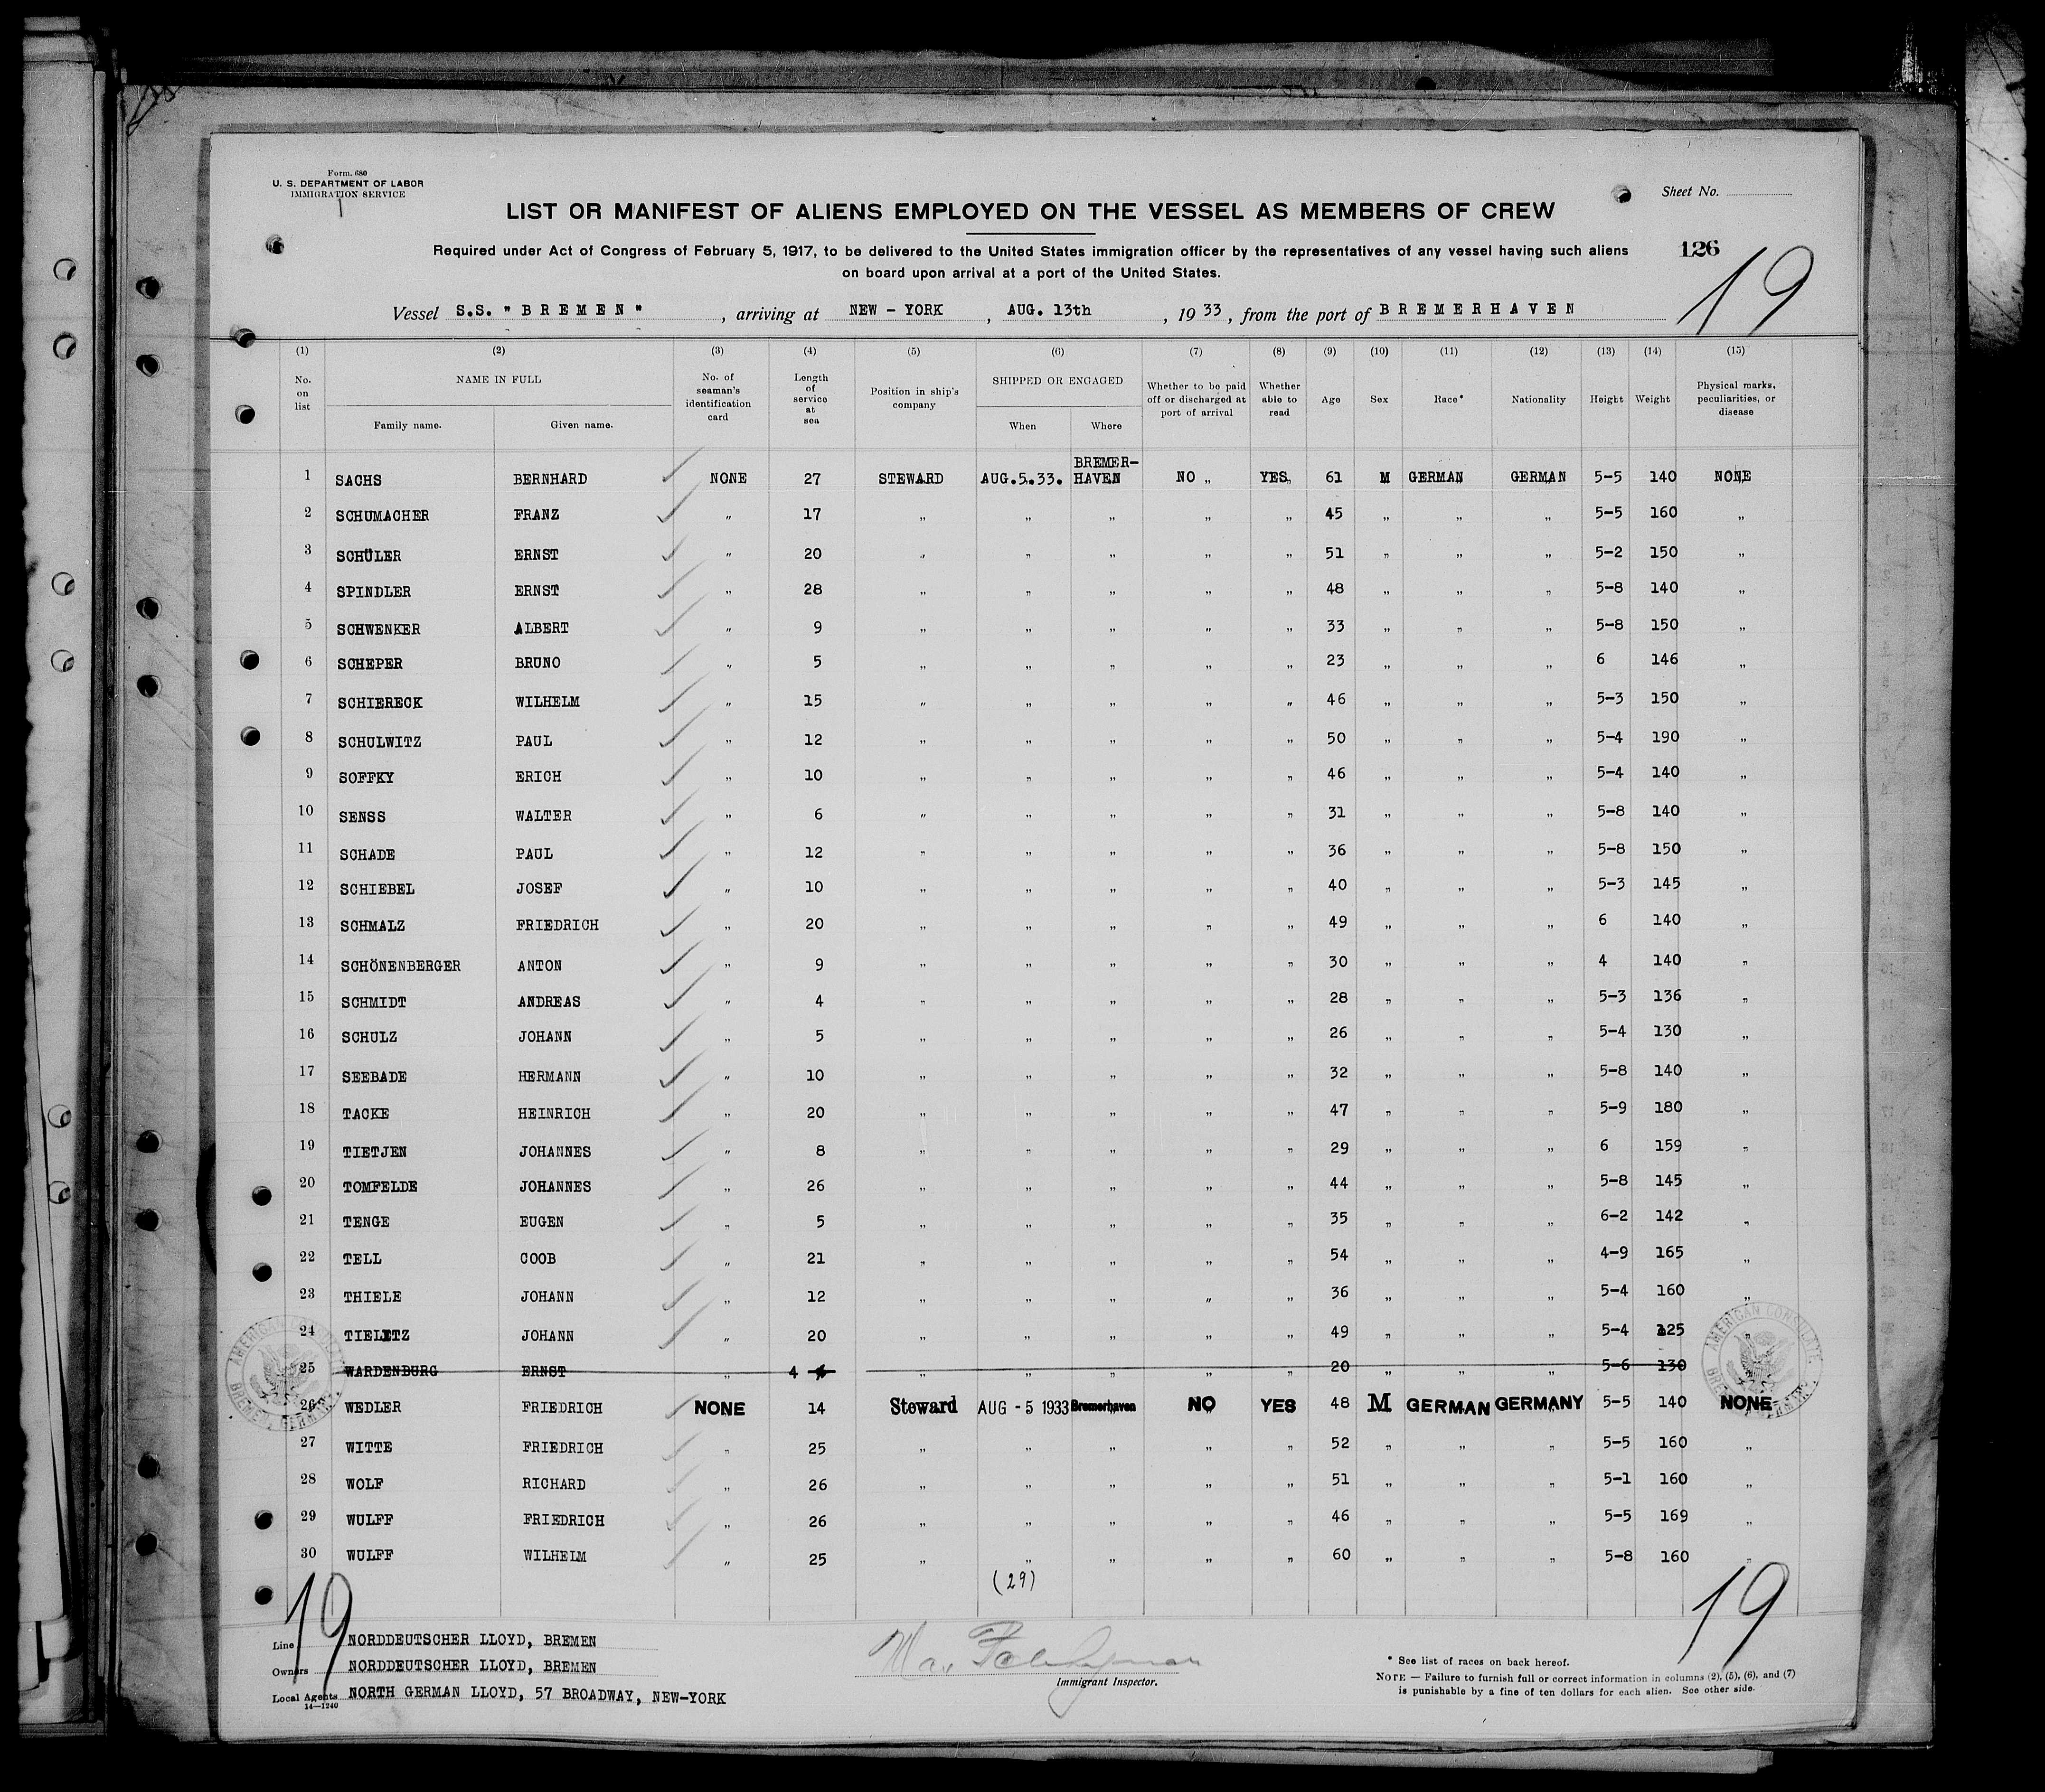 Form. 680
U. S. DEPARTMENT OF LABOR
IMMIGRATION SERVICE
Sheet No.
LIST OR MANIFEST OF ALIENS EMPLOYED ON THE VESSEL AS MEMBERS OF CREW
Required under Act of Congress of February 5, 1917, to be delivered to the United States immigration officer by the representatives of any vessel having such aliens
on board upon arrival at a port of the United States.
126
19
Vessel S.S. "BREMEN", arriving at NEW - YORK, AUG. 13th, 1933, from the port of BREMERHAVEN
(1) (2) (3) (4) (5) (6) (7) (8) (9) (10) (11) (12) (13) (14) (15)
No. on list NAME IN FULL Family name. Given name. No. of seaman's identification card Length of service at sea Position in ship's company SHIPPED OR ENGAGED When Where Whether to be paid off or discharged at port of arrival Whether able to read Age Sex Race* Nationality Height Weight Physical marks, peculiarities, or disease
1 SACHS BERNHARD NONE 27 STEWARD AUG.5.33. BREMER-HAVEN NO „ YES„ 61 M GERMAN GERMAN 5-5 140 NONE
2 SCHUMACHER FRANZ „ 17 „ „ „ „ „ 45 „ „ „ 5-5 160 „
3 SCHÜLER ERNST „ 20 „ „ „ „ „ 51 „ „ „ 5-2 150 „
4 SPINDLER ERNST „ 28 „ „ „ „ „ 48 „ „ „ 5-8 140 „
5 SCHWENKER ALBERT „ 9 „ „ „ „ „ 33 „ „ „ 5-8 150 „
6 SCHEPER BRUNO „ 5 „ „ „ „ „ 23 „ „ „ 6 146 „
7 SCHIERECK WILHELM „ 15 „ „ „ „ „ 46 „ „ „ 5-3 150 „
8 SCHULWITZ PAUL „ 12 „ „ „ „ „ 50 „ „ „ 5-4 190 „
9 SOFFKY ERICH „ 10 „ „ „ „ „ 46 „ „ „ 5-4 140 „
10 SENSS WALTER „ 6 „ „ „ „ „ 31 „ „ „ 5-8 140 „
11 SCHADE PAUL „ 12 „ „ „ „ „ 36 „ „ „ 5-8 150 „
12 SCHIEBEL JOSEF „ 10 „ „ „ „ „ 40 „ „ „ 5-3 145 „
13 SCHMALZ FRIEDRICH „ 20 „ „ „ „ „ 49 „ „ „ 6 140 „
14 SCHÖNENBERGER ANTON „ 9 „ „ „ „ „ 30 „ „ „ 4 140 „
15 SCHMIDT ANDREAS „ 4 „ „ „ „ „ 28 „ „ „ 5-3 136 „
16 SCHULZ JOHANN „ 5 „ „ „ „ „ 26 „ „ „ 5-4 130 „
17 SEEBADE HERMANN „ 10 „ „ „ „ „ 32 „ „ „ 5-8 140 „
18 TACKE HEINRICH „ 20 „ „ „ „ „ 47 „ „ „ 5-9 180 „
19 TIETJEN JOHANNES „ 8 „ „ „ „ „ 29 „ „ „ 6 159 „
20 TOMFELDE JOHANNES „ 26 „ „ „ „ „ 44 „ „ „ 5-8 145 „
21 TENGE EUGEN „ 5 „ „ „ „ „ 35 „ „ „ 6-2 142 „
22 TELL COOB „ 21 „ „ „ „ „ 54 „ „ „ 4-9 165 „
23 THIELE JOHANN „ 12 „ „ „ „ „ 36 „ „ „ 5-4 160 „
24 TIELITZ JOHANN „ 20 „ „ „ „ „ 49 „ „ „ 5-4 125 „
25 WARDENBURG ERNST „ 4 4 „ „ „ „ „ 20 „ „ „ 5-6 130
26 WEDLER FRIEDRICH NONE 14 Steward AUG - 5 1933 Bremerhaven NO YES 48 M GERMAN GERMANY 5-5 140 NONE
27 WITTE FRIEDRICH „ 25 „ „ „ „ „ 52 „ „ „ 5-5 160 „
28 WOLF RICHARD „ 26 „ „ „ „ „ 51 „ „ „ 5-1 160 „
29 WULFF FRIEDRICH „ 26 „ „ „ „ „ 46 „ „ „ 5-5 169 „
30 WULFF WILHELM „ 25 „ „ „ „ „ 60 „ „ „ 5-8 160 „
(29)
AMERICAN CONSULATE
BREMEN, GERMANY
AMERICAN CONSULATE
19
19
Line NORDDEUTSCHER LLOYD, BREMEN
Owners NORDDEUTSCHER LLOYD, BREMEN
Local Agents NORTH GERMAN LLOYD, 57 BROADWAY, NEW-YORK
14—1240
Immigrant Inspector.
* See list of races on back hereof.
NOTE — Failure to furnish full or correct information in columns (2), (5), (6), and (7)
is punishable by a fine of ten dollars for each alien. See other side.